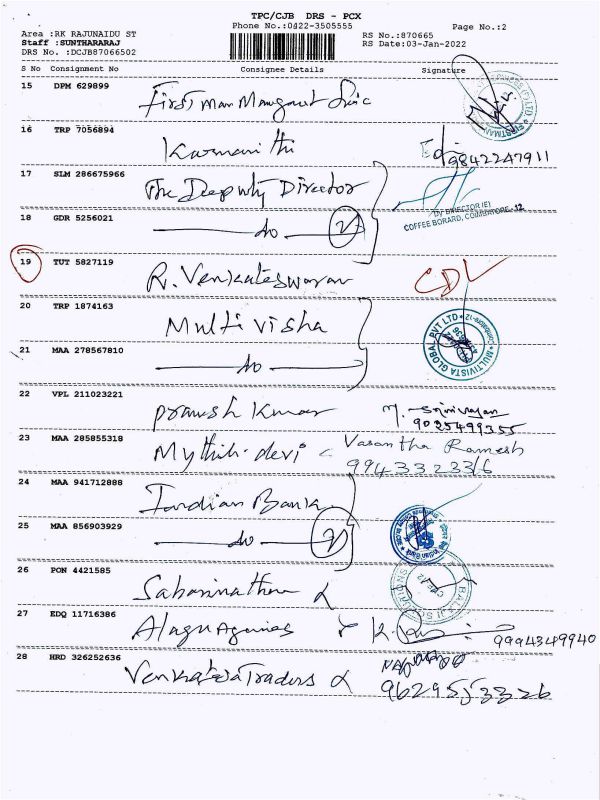 TPC/CJB DRS - PCX
Phone No.:0422-3505555
Page No.:2
Area :RK RAJUNAIDU ST
RS No.:870665
Staff :SUNTHARARAJ
RS Date:03-Jan-2022
DRS No. :DCJB87066502
S No Consignment No Consignee Details Signature
15 DPM 629899
First Man Mangaut
16 TRP 7056894
9842247911
17 SLM 286675966
The Deeputy Director
DY DIRECTOR (E)
COFFEE BORARD, COIMBATORE-12
18 GDR 5256021
do 2
19 TUT 5827119
R. Venkateswaran CDL
20 TRP 1874163
Multi visha
MULTIVISTA GLOBAL PVT LTD
21 MAA 278567810
do
22 VPL 211023221
Pranesh Kumar M. Srinivasan
9025499355
23 MAA 285855318
Mythili devi Vasantha Ramesh
9943323316
24 MAA 941712888
Indian Bank
25 MAA 856903929
do 2
26 PON 4421585
Sabarinathan
27 EDQ 11716386
Alagu Agencies
9994349940
28 HRD 326252636
Venkateswa Traders
9629553326